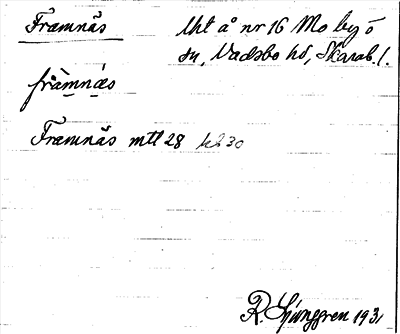 Framnäs Uht å nr 16 Mo by ö
sn, Vadsbo hd, Skarab. l.
fràmnæs
Framnäs mtl 28 k2 30
R. Ljunggren 1931